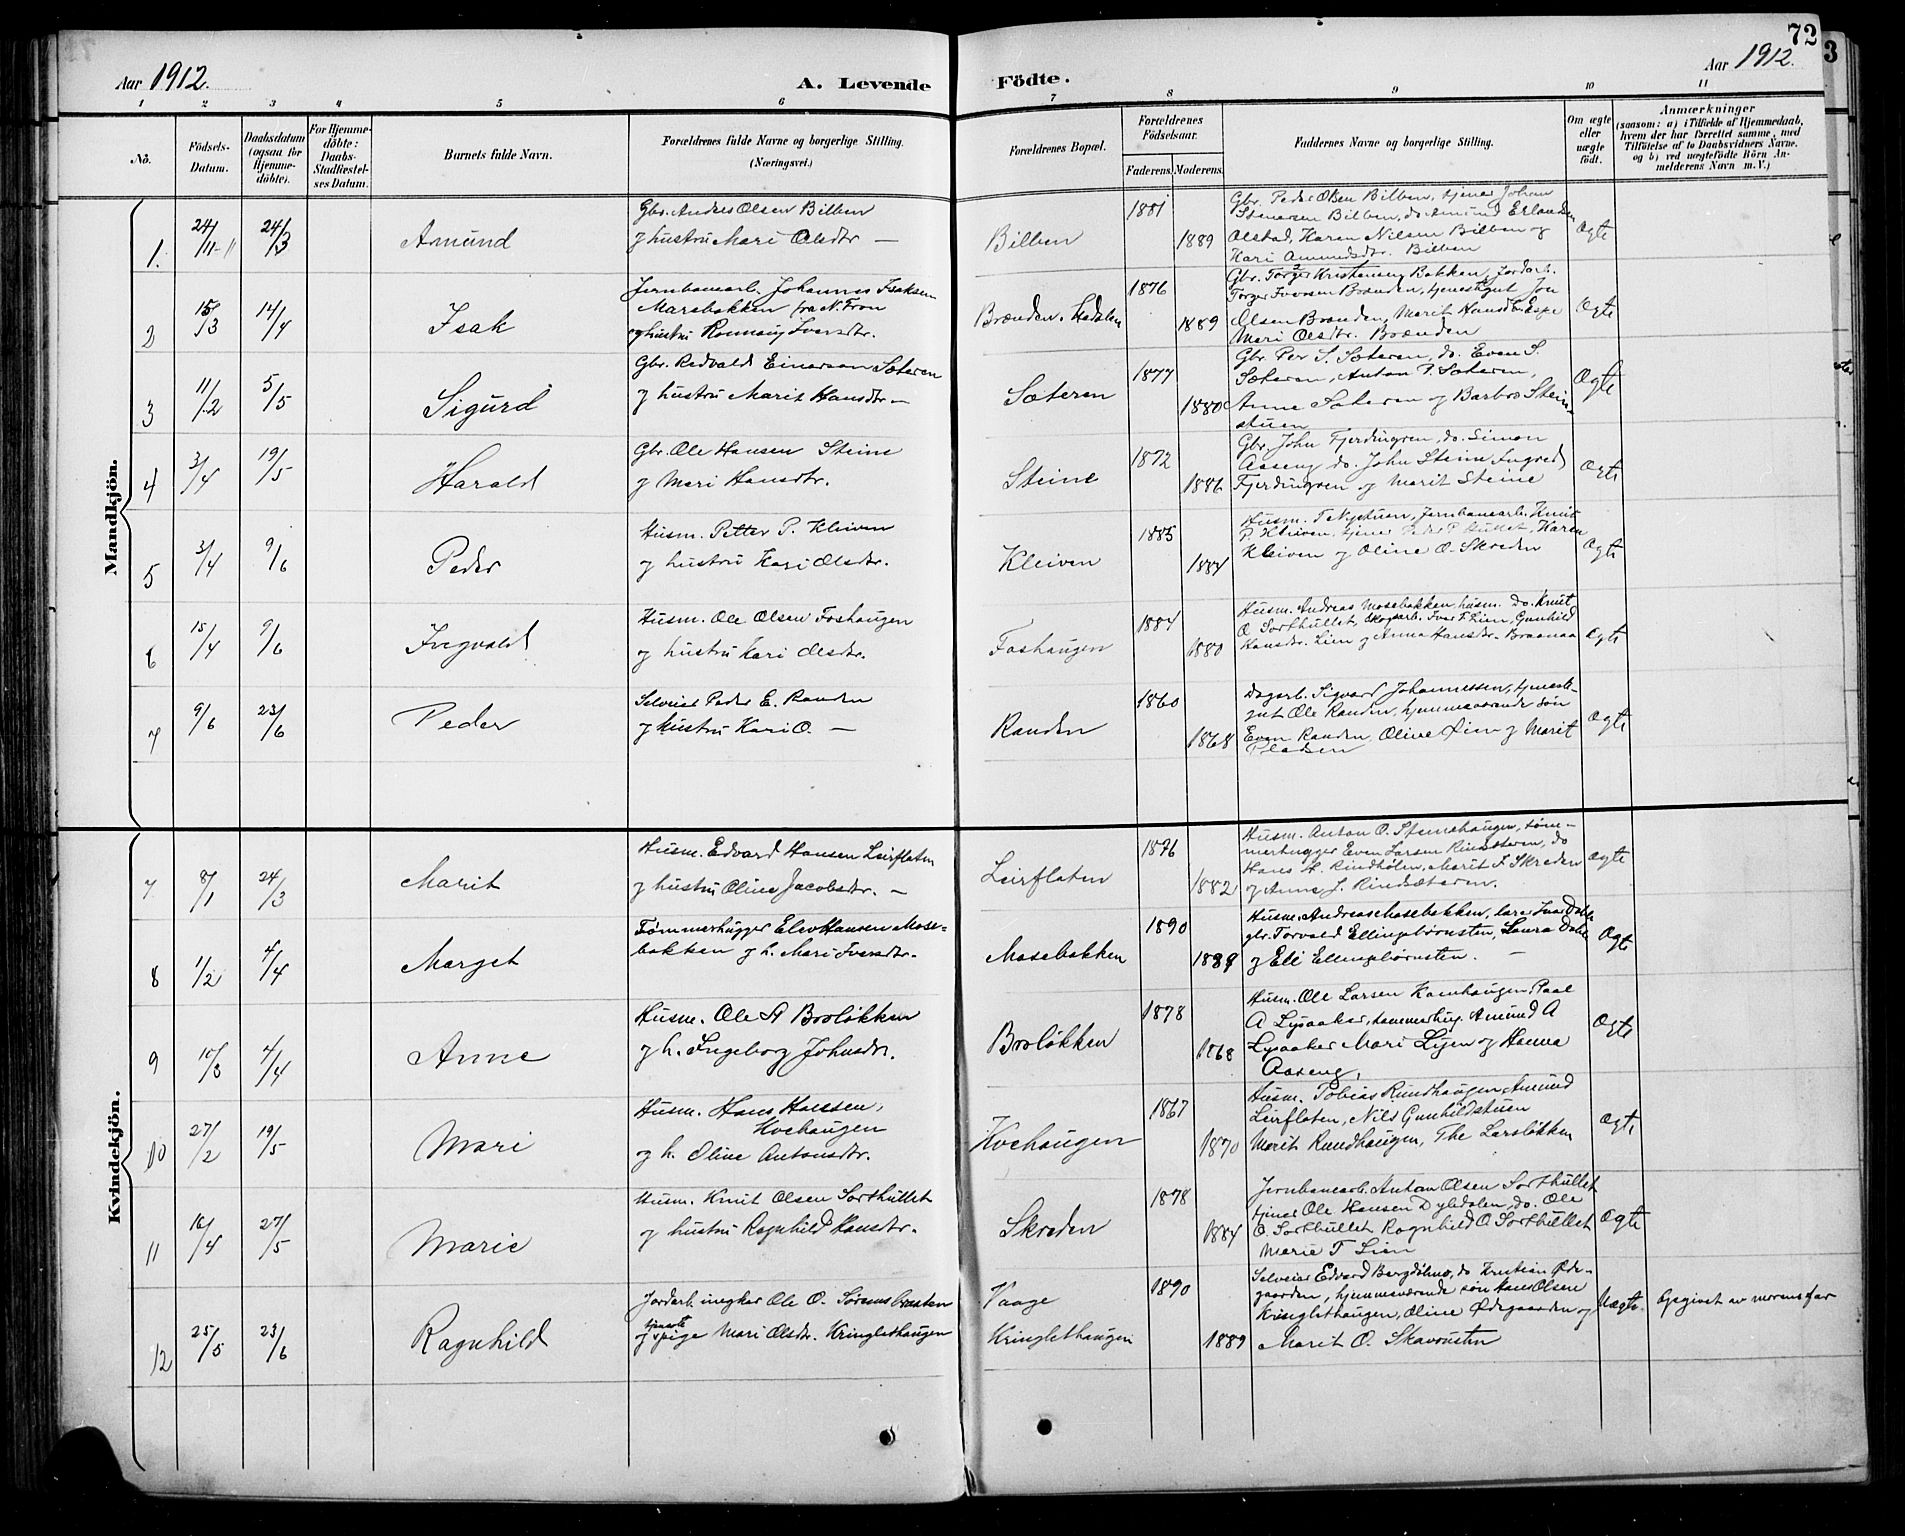 72
3
Aar 1912.
A. Levende
Födte.
Aar 1912.
1 2 3 4 5 6 7 8 9 10 11
No.
Födsels-
Datum.
Daabsdatum
(ogsaa for
Hjemme-
döbte).
For Hjemme-
döbte:
Daabs-
Stadfæstel-
ses Datum.
Barnets fulde Navn.
Forældrenes fulde Navne og borgerlige Stilling.
(Næringsvei.)
Forældrenes Bopæl.
Forældrenes
Födselsaar.
Faderens. Moderens.
Faddernes Navne og borgerlige Stilling.
Om ægte
eller
uægte
födt.
Anmærkninger
(saasom: a) i Tilfælde af Hjemmedaab,
hvem der har forrettet samme, med
Tilföielse af to Daabsvidners Navne,
og b) ved uægtefödte Börn An-
melderens Navn m.V.)
Mandkjön.
1. 24/11-11 24/3 Amund
Gbr. Anders Olsen Bilben
og hustru Mari Olsdtr. —
Bilben 1881 1889
Gbr. Peder Olsen Bilben, tjener Johan
Stenersen Bilben, do Amund Erlandsen
Olstad, Karen Nilsen Bilben og
Kari Amundsdtr. Bilben
Ægte
2 15/3 14/4 Isak
Jernbanearb. Johannes Isaksen
Marsbakken fra N. Fron
og hustru Ronnaug Iversdtr.
Brænden. Hedalen 1876 1889
Gbr. Torger Kristensen Bakken, Jordarb.
Torger Iversen Brænden, tjenestgut Jon
Olsen Brænden, Marit Hansdtr Espe
Mari Olsdtr. Brænden
Ægte
3 11/12 5/5 Sigurd
Gbr. Redvald Einarson Sæteren
og hustru Marit Hansdtr —
Sæteren 1877 1880
Gbr. Per S. Sæteren, do. Even S.
Sæteren, Anton P. Sæteren,
Anne Sæteren og Barbro Stein-
stuen
Ægte
4 3/4 19/5 Harald
Gbr. Ole Hansen Steine
og Mari Hansdtr.
Steine 1872 1886
Gbr. John Fjerdingren, do. Simon
Aaseng do. John Steine Ingred
Fjerdingren og Marit Steine
Ægte
5 3/4 9/6 Peder
Husm. Petter P. Kleiven
og hustru Kari Olsdtr.
Kleiven 1885 1884
Husm. T. Nystuen, Jernbanearb. Knut
P. Kleiven, tjener Peder P. Karen
Kleiven og Oline O. Skreden
Ægte
6 15/4 9/6 Ingvald
Husm. Ole Olsen Foshaugen
og hustru Kari Olsdtr.
Foshaugen 1884 1880
Husm. Andreas Mosebakken, husm. Do. Knut
O Sorthullet, skogarb. Ivar T Lien, Gunhild
Hansdtr. Lien og Anna Hansdtr. Braanaa
Ægte
7 9/6 23/6 Peder
Selveier Peder E. Randen
og hustru Kari O. —
Randen 1860 1868
Dagarb. Sigvard Johannessen, tjeneste-
gut Ole Randen, hjemmeværende søn
Even Randen, Oline Lien og Marit
Pladsen
Ægte
Kvindekjön.
7 8/1 24/3 Marit
Husm. Edvard Hansen Leirflaten
og hustru Oline Jacobsdtr. —
Leirflaten 1876 1882
Husm. Anton O. Stenshaugen, töm-
merhugger Even Larsen Rindsæteren, do
Hans H. Rindhölen, Marit F. Skreden
og Anne J. Rindsæteren.
Ægte
8 1/2 4/4 Marget
Tømmerhugger Elev Hansen Mose-
bakken og h. Mari Iversdtr.
Mosebakken 1890 1889
Husm. Andreas Mosebakken, lærer Ivar Dahle
gbr. Torvald Ellingsbørnsten, Laura Dahle
og Eli Ellingsbørnsten. —
Ægte
9 10/3 4/4 Anne
Husm. Ole A Broløkken
og h. Ingeborg Johnsdtr.
Broløkken 1878 1868
Husm. Ole Larsen Kamhaugen, Paal
A Lysaaker, tømmerhug. Amund A
Lysaaker Mari Lijen og Hanna
Aaseng.
Ægte
10 27/2 19/5 Mari
Husm. Hans Hansen,
Kvehaugen
og h. Oline Antonsdtr.
Kvehaugen 1867 1870
Husm. Tobias Rundhaugen, Amund
Leirflaten, Nils Gunhildstuen
Marit Rundhaugen, The Larsløkken
Ægte
11 16/4 27/5 Marie
Husm. Knut Olsen Sorthullet
og hustru Ragnhild Hansdtr.
Skreden 1878 1884
Jernbanearb. Anton Olsen Sorthullet
tjener Ole Hansen Dyhdalen, do. Ole
O. Sorthullet Ragnhild O Sorthullet
Marie T Lien
Ægte
12 25/5 23/6 Ragnhild
Jordarb. ungkar Ole O. Sørumsbraaten
tjeneste
og pige Mari Olsdtr. Kringlethaugen
Vaage
Kringlethaugen 1890 1889
Selveier Edvard Bergdølmo, do Kristian Øde-
gaarden, hjemmeværende søn Hans Olsen
Kringlethaugen, Oline Ødegaarden og
Marit O. Skavrusten
Uægte. Opgivet av morens far